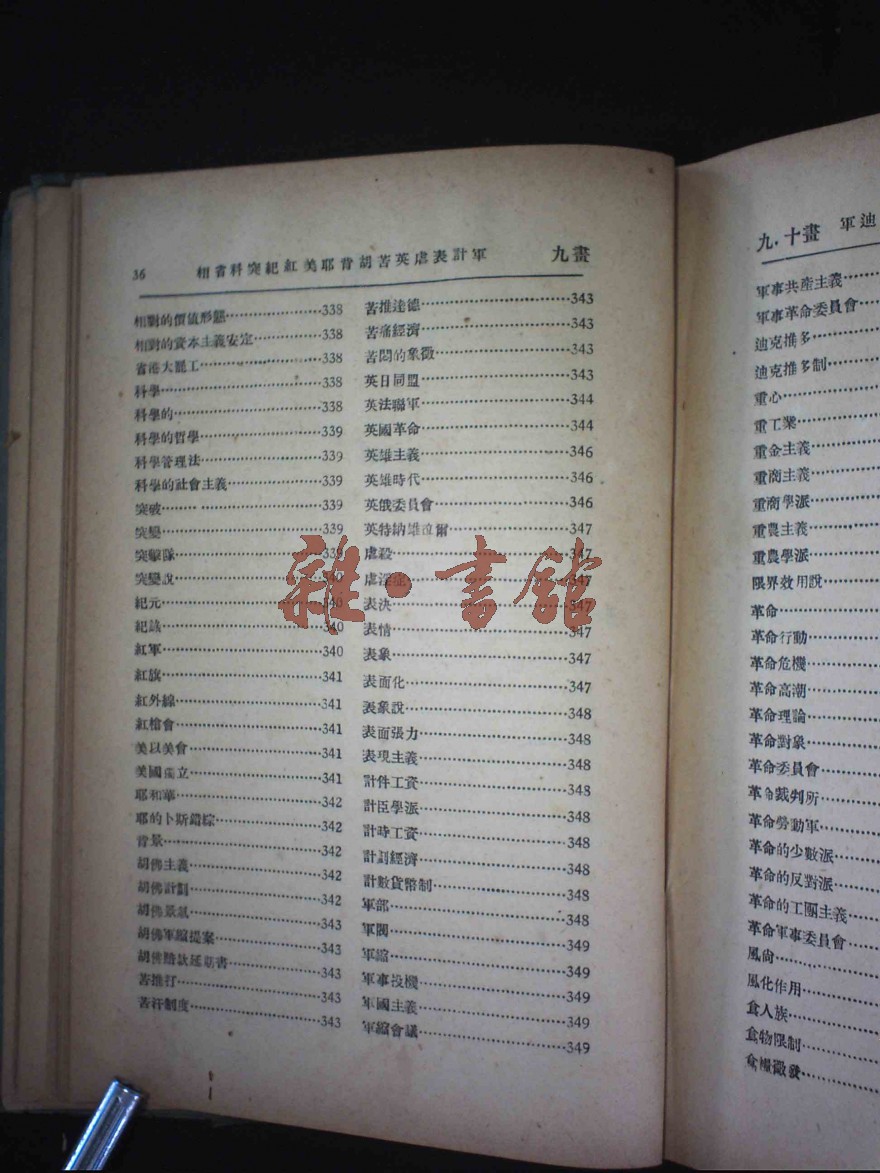 36 相省科突紀紅美耶背胡苦英虐表計軍 九畫
相對的價值形態………338
相對的資本主義安定………338
省港大罷工………338
科學………338
科學的………338
科學的哲學………339
科學管理法………339
科學的社會主義………339
突破………339
突變………339
突擊隊………339
突變說………340
紀元………340
紀錄………340
紅軍………340
紅旗………341
紅外線………341
紅槍會………341
美以美會………341
美國獨立………341
耶和華………342
耶的卜斯錯綜………342
背景………342
胡佛主義………342
胡佛計劃………342
胡佛景氣………343
胡佛軍縮提案………343
胡佛賠款延期書………343
苦推打………343
苦汗制度………343
苦推達德………343
苦痛經濟………343
苦悶的象徵………343
英日同盟………343
英法聯軍………344
英國革命………344
英雄主義………346
英雄時代………346
英俄委員會………346
英特納雄拉爾………347
虐殺………347
虐淫症………347
表決………347
表情………347
表象………347
表面化………347
表象說………348
表面張力………348
表現主義………348
計件工資………348
計臣學派………348
計時工資………348
計劃經濟………348
計數貨幣制………348
軍部………348
軍閥………349
軍縮………349
軍事投機………349
軍國主義………349
軍縮會議………349
雜·書館
九·十畫 軍迪
軍事共產主義………
軍事革命委員會………
迪克推多………
迪克推多制………
重心………
重工業………
重金主義………
重商主義………
重商學派………
重農主義………
重農學派………
限界效用說………
革命………
革命行動………
革命危機………
革命高潮………
革命理論………
革命對象………
革命委員會………
革命裁判所………
革命勞動軍………
革命的少數派………
革命的反對派………
革命的工團主義………
革命軍事委員會………
風尚………
風化作用………
食人族………
食物限制………
食糧徵發………